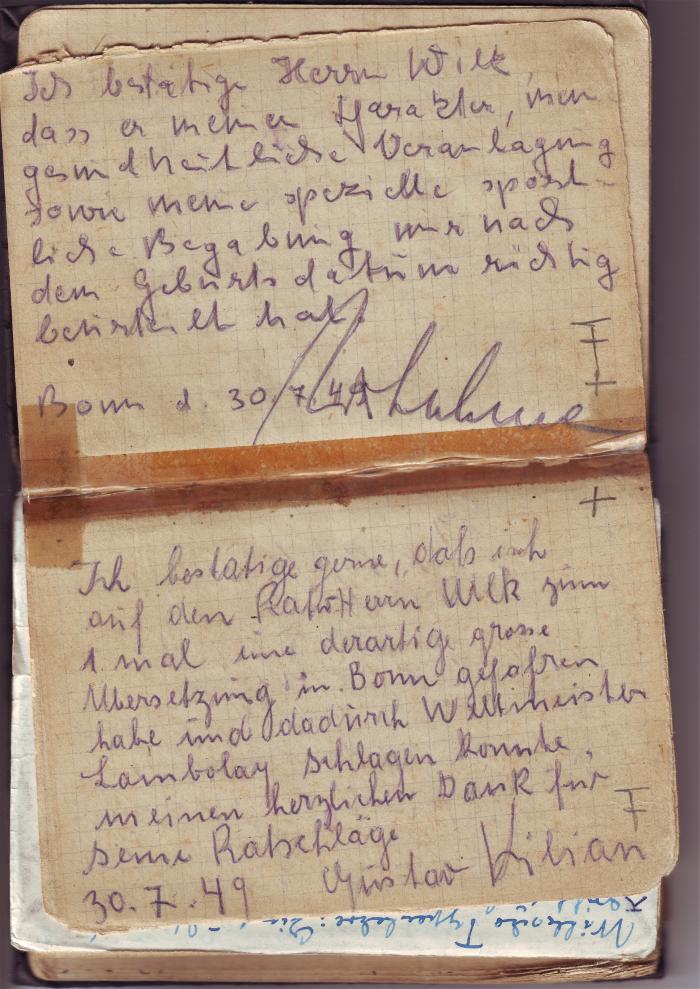 Ich bestätige Herrn Wilk,
dass er meinen Charakter, mein
gesundheitliche Veranlagung
sowie meine spezielle sport-
liche Begabung nur nach
dem Geburtsdatum richtig
beurteilt hat.
Bonn d. 30.7.49
Ich bestätige gerne, daß ich
auf den Rat v. Herrn Wilk zum
1. mal eine derartige grosse
Übersetzung in Bonn gefahren
habe und dadurch Weltmeister
Lamboley schlagen konnte,
meinen herzlichen Dank für
seine Ratschläge
30.7.49 Gustav Kilian